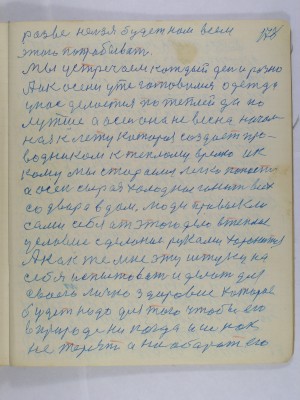 разве нельзя будет нам всем
этого потребливат.
Мы устречаем каждый ден а разно
А к осени уте готовимся одетда
у нас делается по теплей да по
лутше а осен она не весна начал
ная к лету которая создает про-
водником к теплому время и к
кому мы стараимся легко
а осен сырая холодная гонит всех
со двора в дом. люди привыкли
сами себя от этого дело в теплые
условие сделаные руками хорониться
А как же мне эту штуку на
себя испытоват и делат для
своего лично здоровие которое
будет надо для того чтобы его
в природе ни когда и ни как
не терят а наоборот его